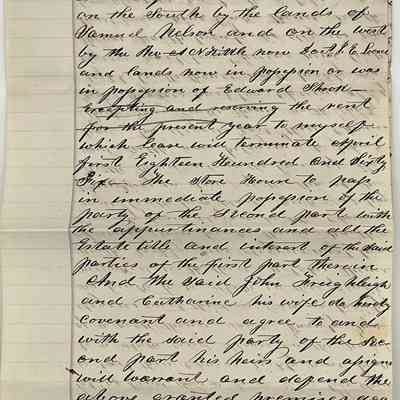 on the South by the lands of
Samuel Nelson and on the west
by the Rev A N Kittle now
and lands now in possession or was
in possession of Edward Shook
excepting and reserving the rent
for the present year to myself
which lease will terminate April
first Eighteen Hundred and Sixty
Six— The Store House to pass
in immediate possession of the
party of the Second part with
the appurtinances and all the
Estate title and interest of the said
parties of the first part therein
And the said John Freighleigh
and Catharine his wife do hereby
covenant and agree to and
with the said party of the Sec
ond part his heirs and assigns
will warrant and depend the
above granted premises